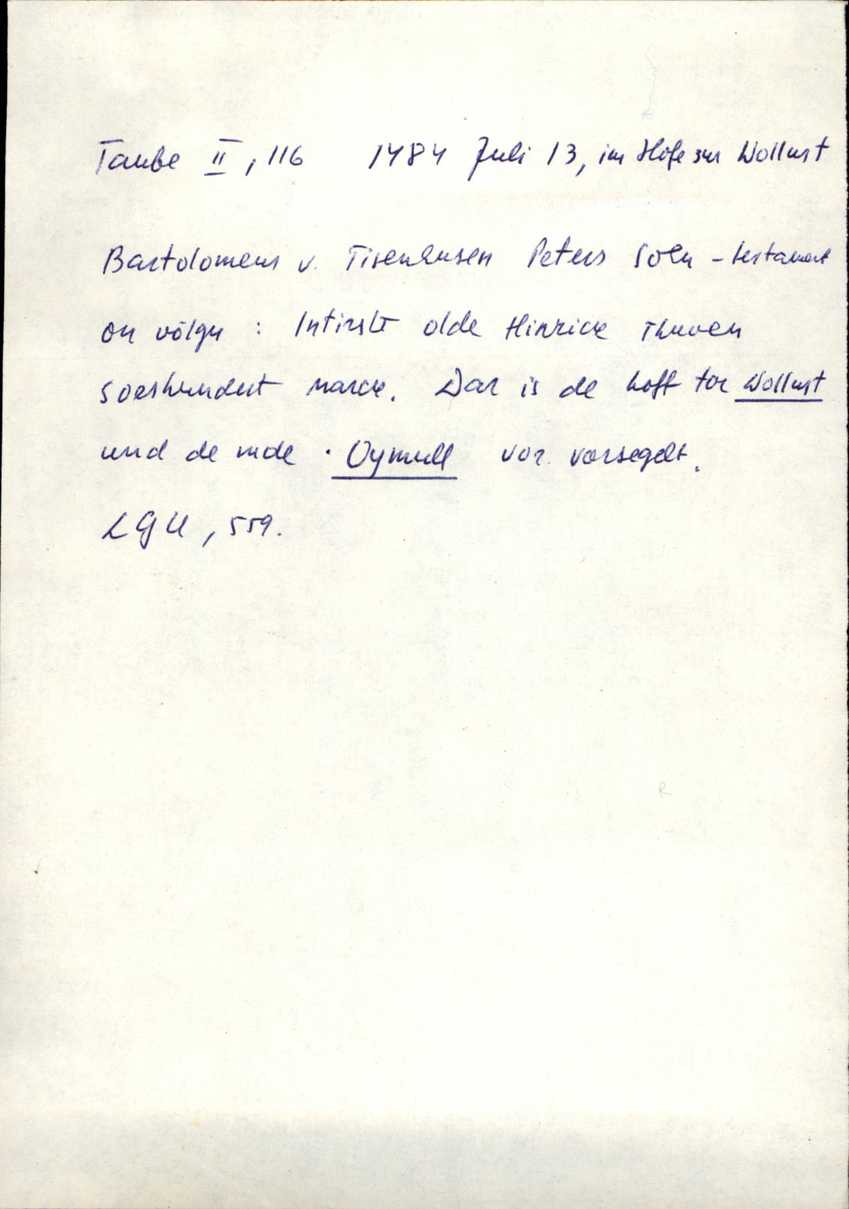 Taube II, 116 1484 Juli 13, im Hofe zur Wollust
Bartolomeus v. Tisenhusen Peters Sohn - testament
on võlgu : Intirste olde Hinrick Thuven
soeshundert marck. Dar is de hoff tor Wollust
und de mole Oymull vor vorsegelt.
LGU, 559.